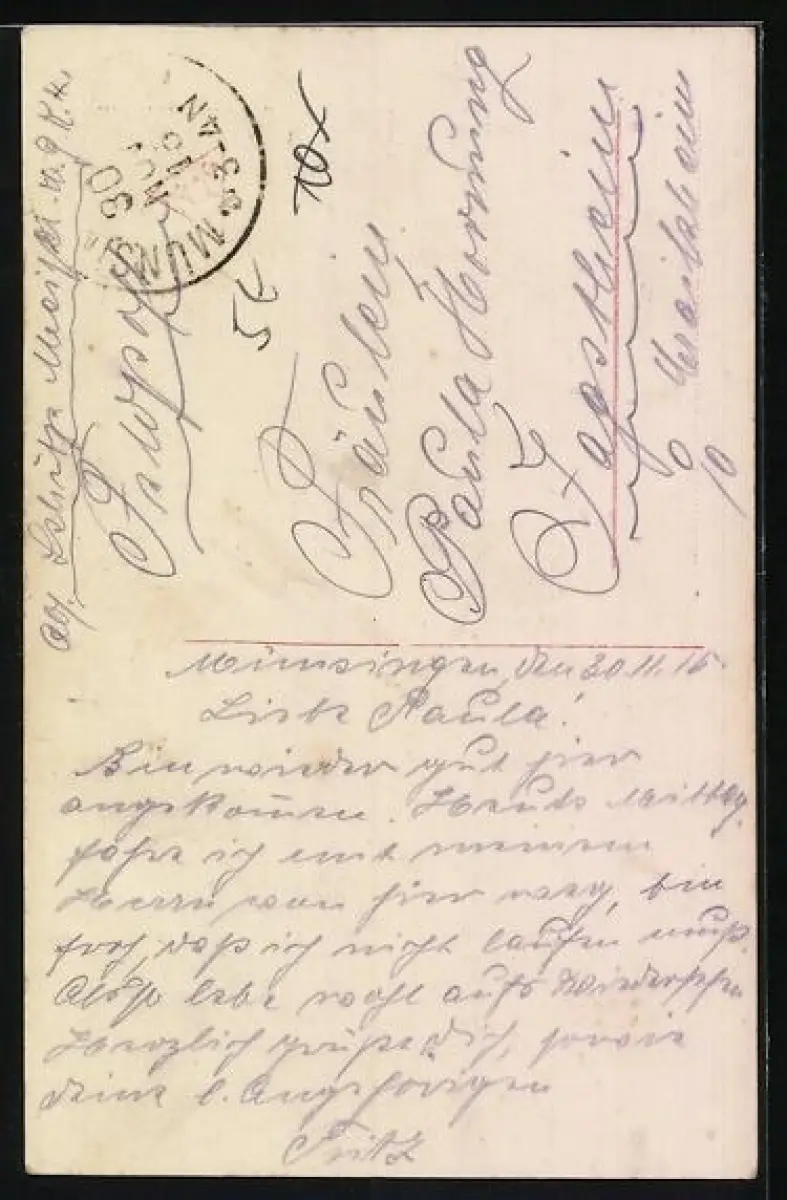 Abs. Schütze
Feldpost
MÜNS
30
NOV
JAN
5€
10x
Fräulein
Paula Hornung
Jagstheim
Crailsheim
Münsingen, den 30.11.15.
Liebe Paula!
Bin wieder gut hier
angekommen. Heute Mittag
fahre ich mit meinem
Herrn von hier weg, bin
froh, daß ich nicht laufen muß.
Also lebe wohl aufs Wiedersehen
Herzlich grüße Dich, sowie
deine l. Angehörigen
Fritz